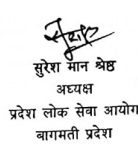 सुरेश मान श्रेष्ठ
अध्यक्ष
प्रदेश लोक सेवा आयोग
बागमती प्रदेश